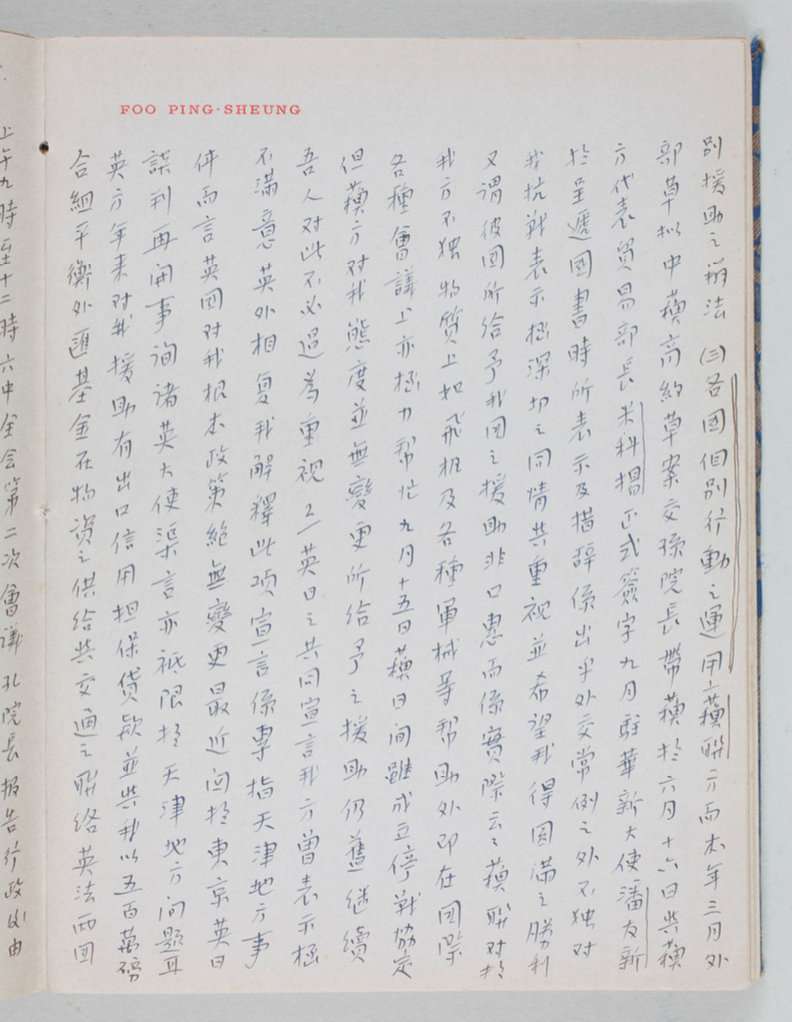 FOO PING-SHEUNG
別援助之辦法 (三)各國個別行動之運用 1/蘓聯方面本年三月外
部草拟中蘓商約草案交孫院長帶蘓於六月十六日與蘓
方代表貿易部長米科揚正式簽字九月駐華新大使潘友新
於呈遞國書時所表示及措辞係出乎外交常例之外不独对
我抗战表示極深切之同情與重視並希望我得圆满之勝利
又谓彼國所给予我国之援助非口惠而係實際云云蘓聯对於
我方不独物質上如飛机及各種軍械等帮助外即在国際
各種會議上亦極力帮忙九月十五日蘓日间雖成立停戰協定
但蘓方对我態度並無變更所给予之援助仍舊继續
吾人对此不必過為重視 2/英日之共同宣言我方曾表示極
不滿意英外相复我解釋此項宣言係專指天津地方事
件而言英国对我根本政策絕無變更最近関於東京英日
談判再開事询诸英大使渠言亦祗限於天津地方问題耳
英方年来对我援助有出口信用担保貸款並與我以五百萬磅
合組平衡外匯基金在物資之供给與交通之联络英法两国
上午九時至十二時六中全会第二次會議孔院長報告行政